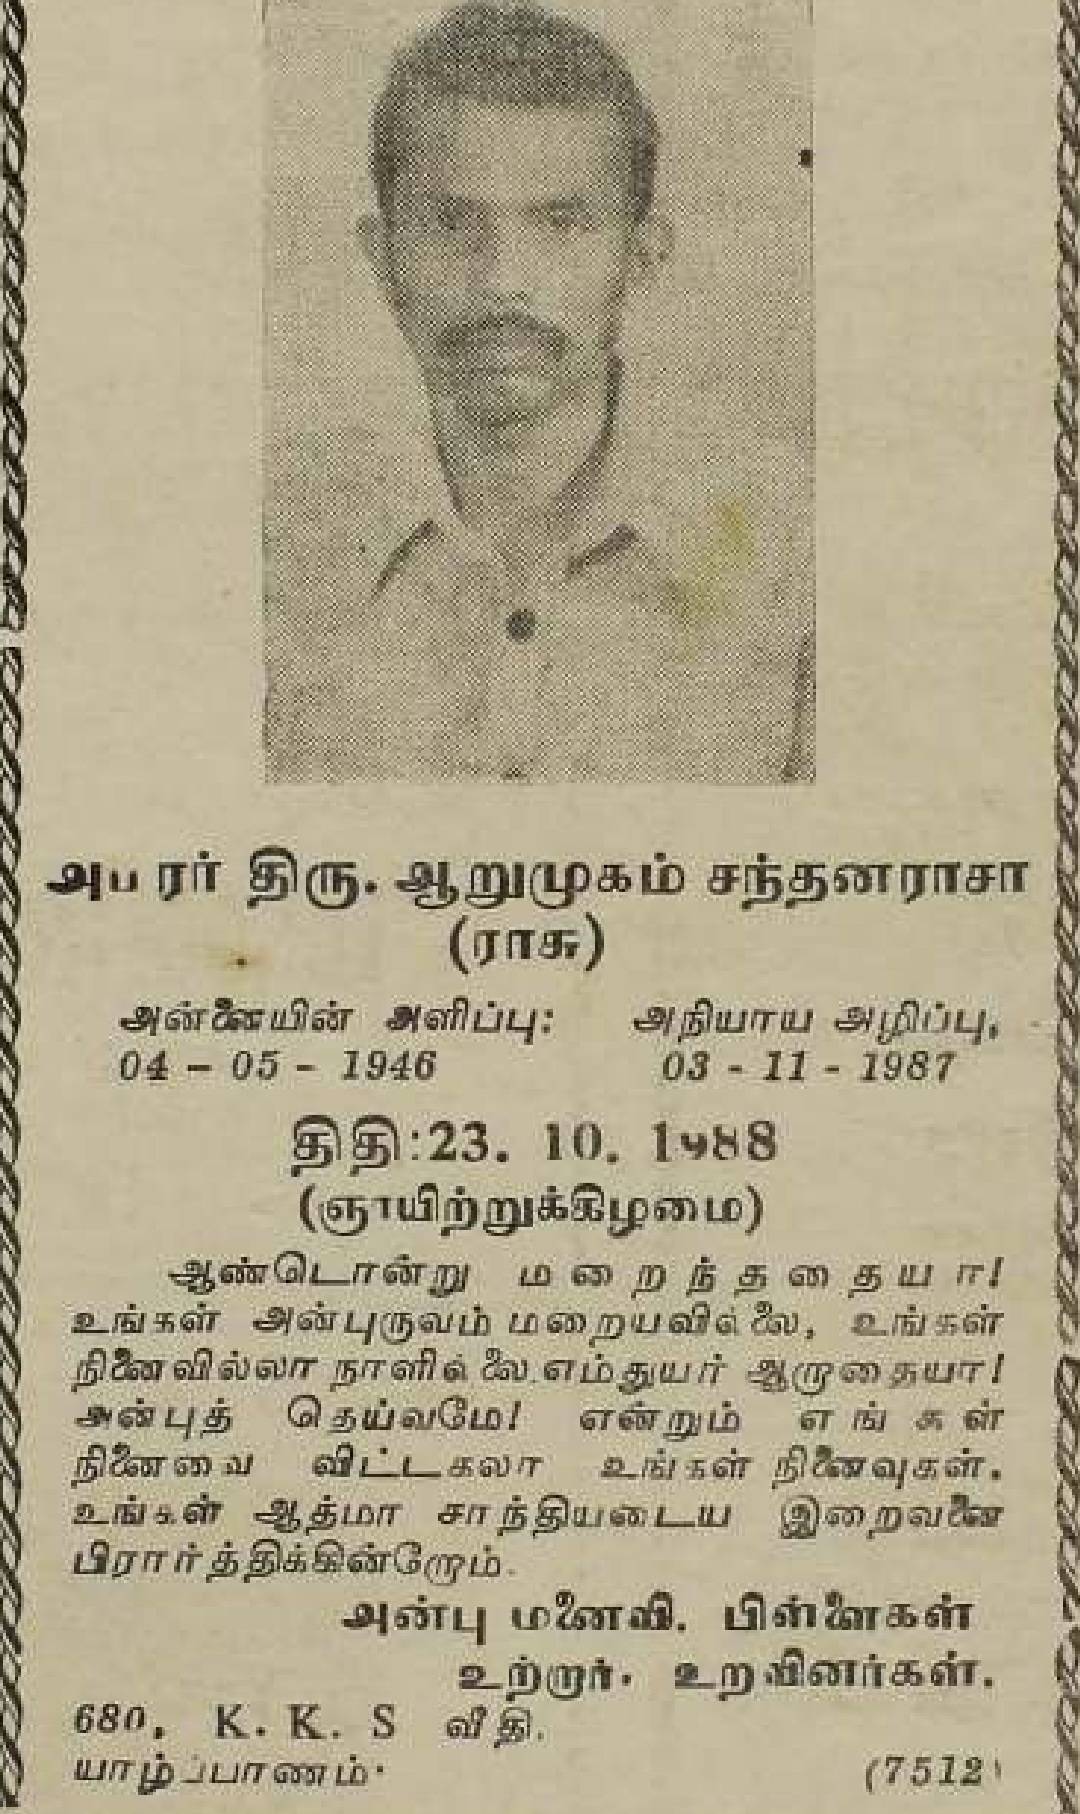 அபரர் திரு. ஆறுமுகம் சந்தனராசா
(ராசு)
அன்னையின் அளிப்பு: அநியாய அழிப்பு,
04 - 05 - 1946 03 - 11 - 1987
திதி:23. 10. 1988
(ஞாயிற்றுக்கிழமை)
ஆண்டொன்று மறைந்ததையா!
உங்கள் அன்புருவம் மறையவில்லை, உங்கள்
நினைவில்லா நாளில்லை எம்துயர் ஆறாதையா!
அன்புத் தெய்வமே! என்றும் எங்கள்
நினைவை விட்டகலா உங்கள் நினைவுகள்.
உங்கள் ஆத்மா சாந்தியடைய இறைவனை
பிரார்த்திக்கின்றோம்.
அன்பு மனைவி. பிள்ளைகள்
உற்றார். உறவினர்கள்.
680, K. K. S வீதி.
யாழ்ப்பாணம். (7512)